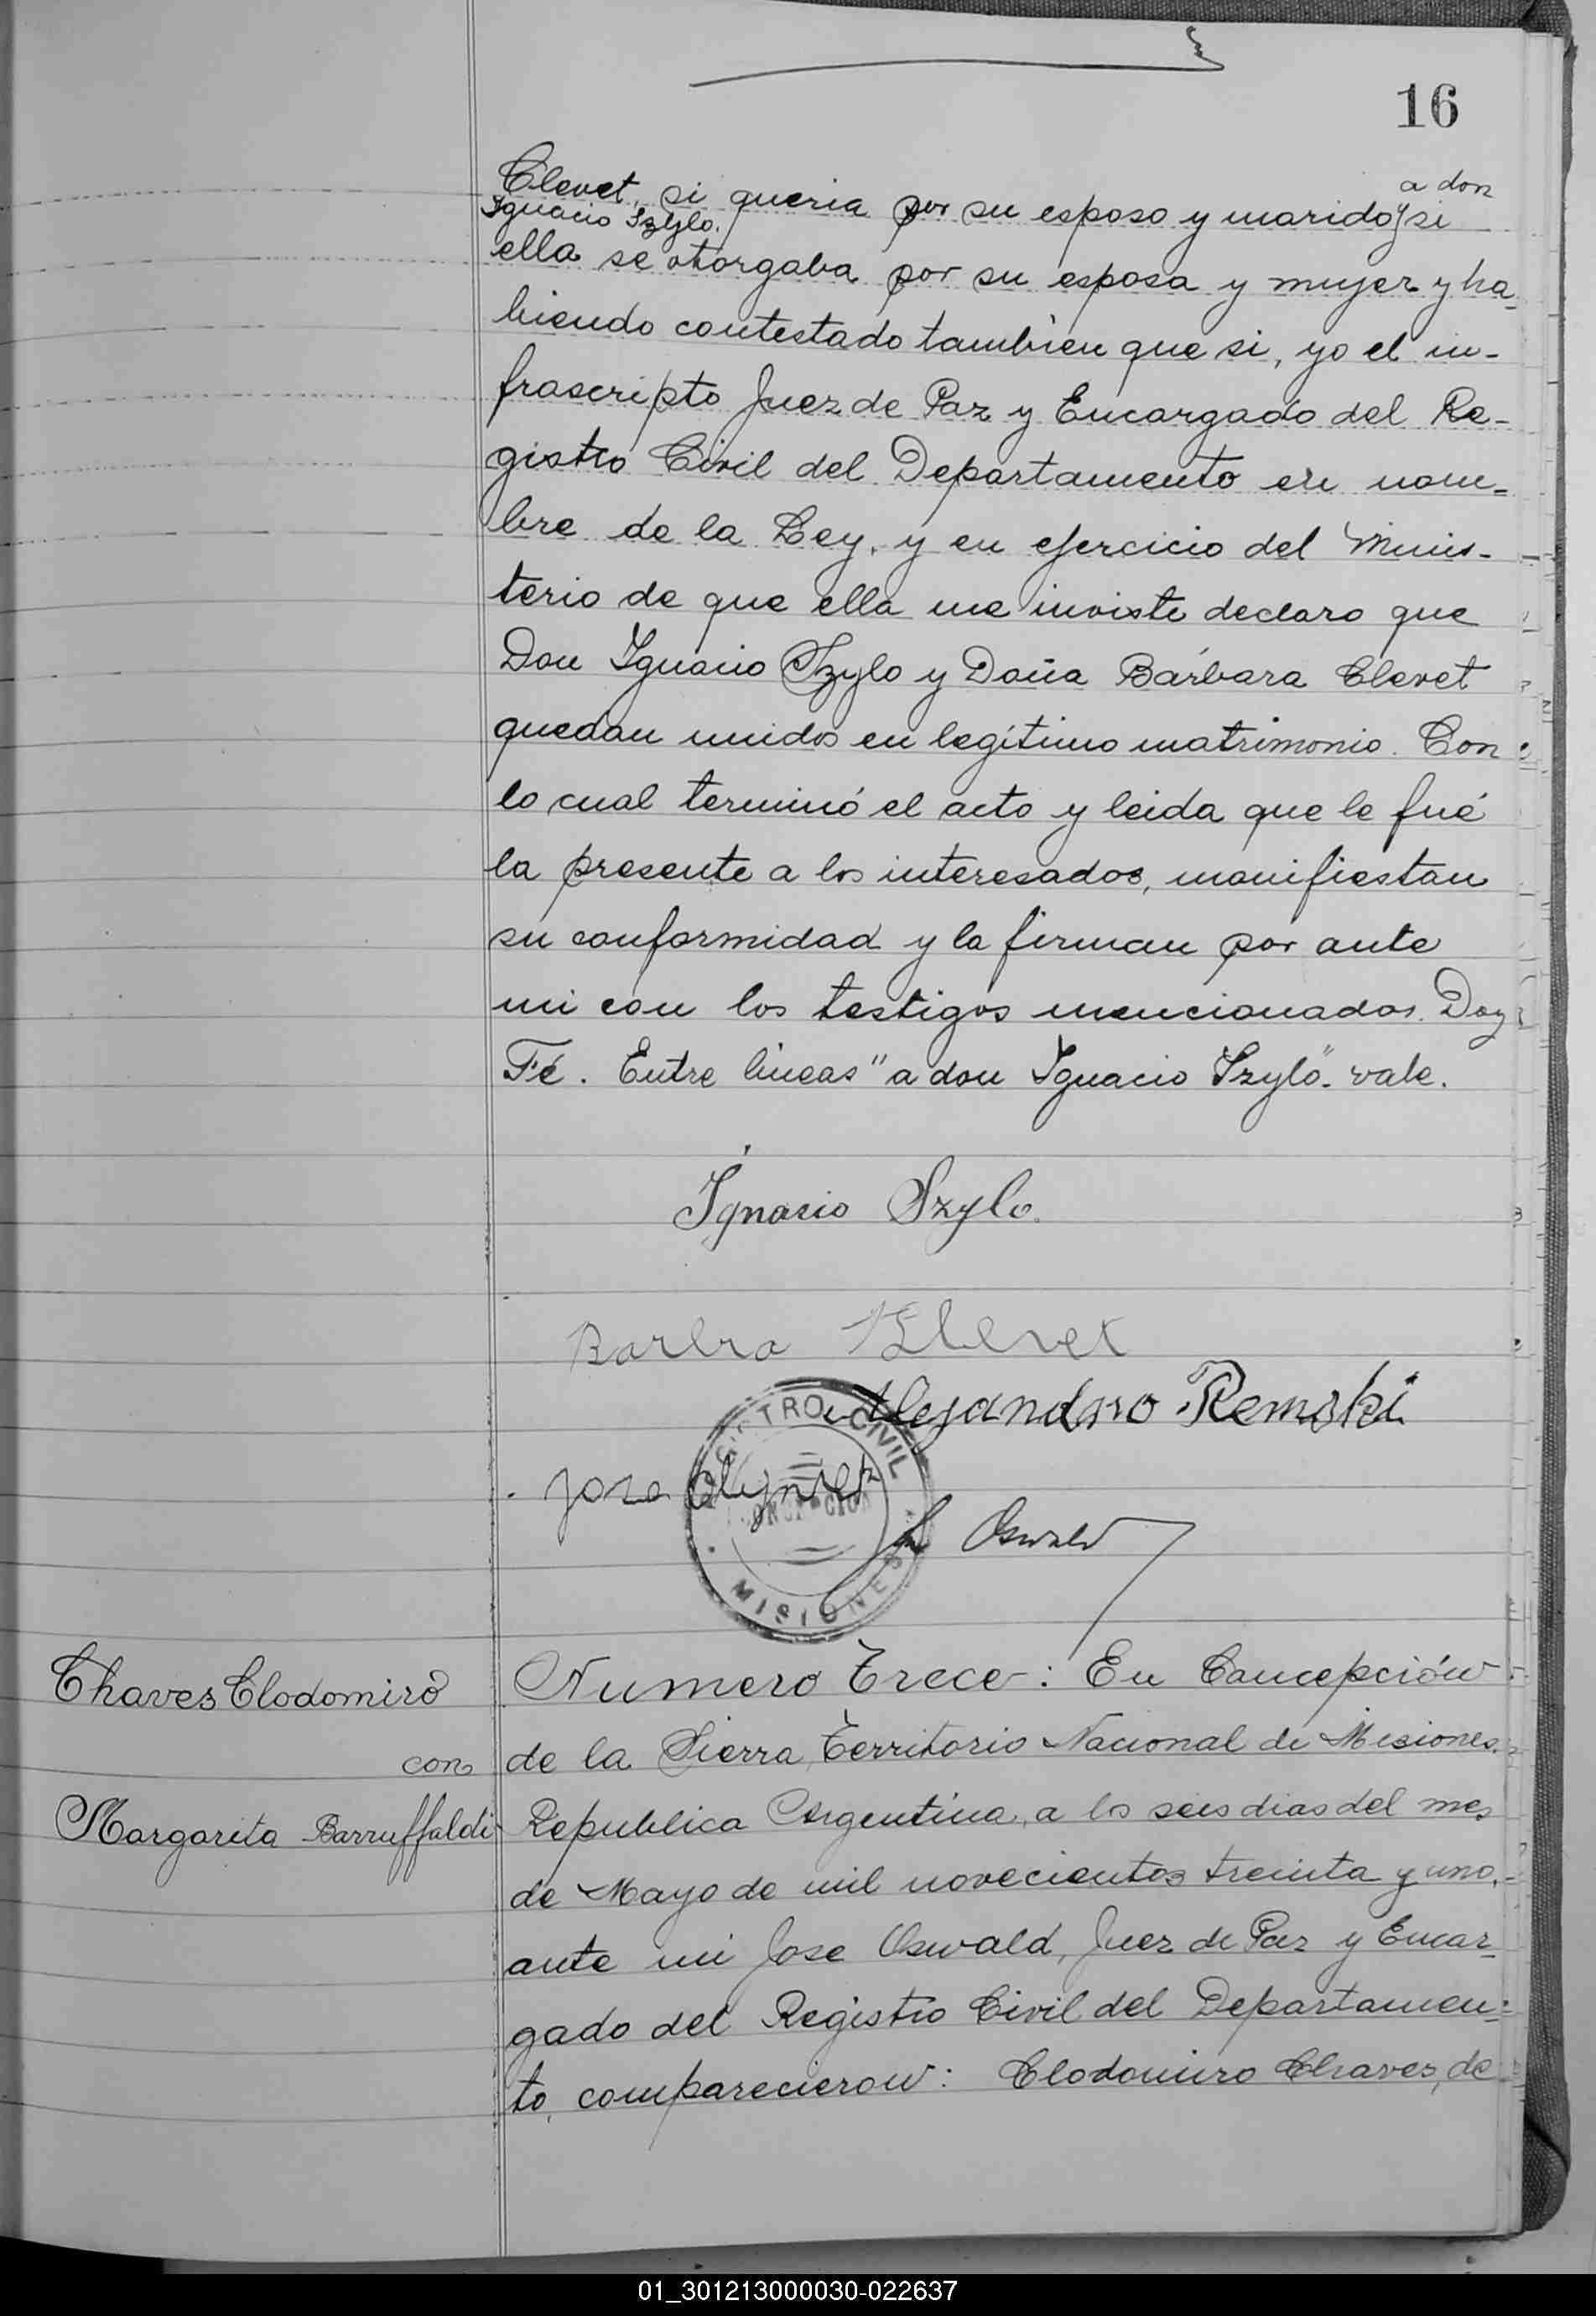 16
Clevet, si queria por su esposo y marido y si
a don
Ignacio Szylo.
ella se otorgaba por su esposa y mujer y ha-
biendo contestado tambien que si, yo el in-
frascripto Juez de Paz y Encargado del Re-
gistro Civil del Departamento en nom-
bre de la Ley, y en ejercicio del Minis-
terio de que ella me inviste declaro que
Don Ignacio Szylo y Doña Bárbara Clevet
quedan unidos en legítimo matrimonio. Con
lo cual terminó el acto y leida que le fué
la presente a los interesados, manifiestan
su conformidad y la firman por ante
mi con los testigos mencionados. Doy
Fé. Entre lineas "a don Ignacio Szylo" vale.
Ignacio Szylo.
Barbra Klevet
Alejandro Remski
REGISTRO CIVIL
CONCEPCION
MISIONES
Jose
Oswald
Chaves Clodomiro
con
Margarita Barruffaldi
Numero Trece: En Concepción
de la Sierra, Territorio Nacional de Misiones,
Republica Argentina, a los seis dias del mes
de Mayo de mil novecientos treinta y uno,
ante mi Jose Oswald, Juez de Paz y Encar-
gado del Registro Civil del Departamen-
to, comparecieron: Clodomiro Chaves, de
01_301213000030-022637